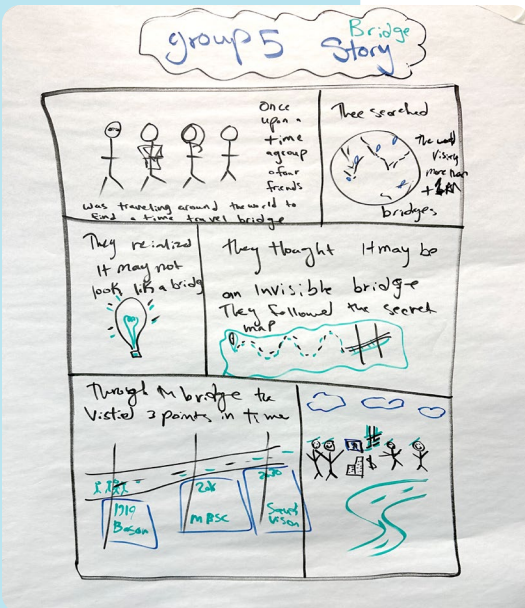 group 5 Bridge
Story
Once
upon a
time
a group
of our
friends
was traveling around the world to
find a time travel bridge
They searched
The world
visiting
more than
bridges
They reialized
It may not
look like a bridg
they thought It may be
an Invisible bridge
They followed the secret
map
Through M bridge the
Vistied 3 points in time
1919
MBSC